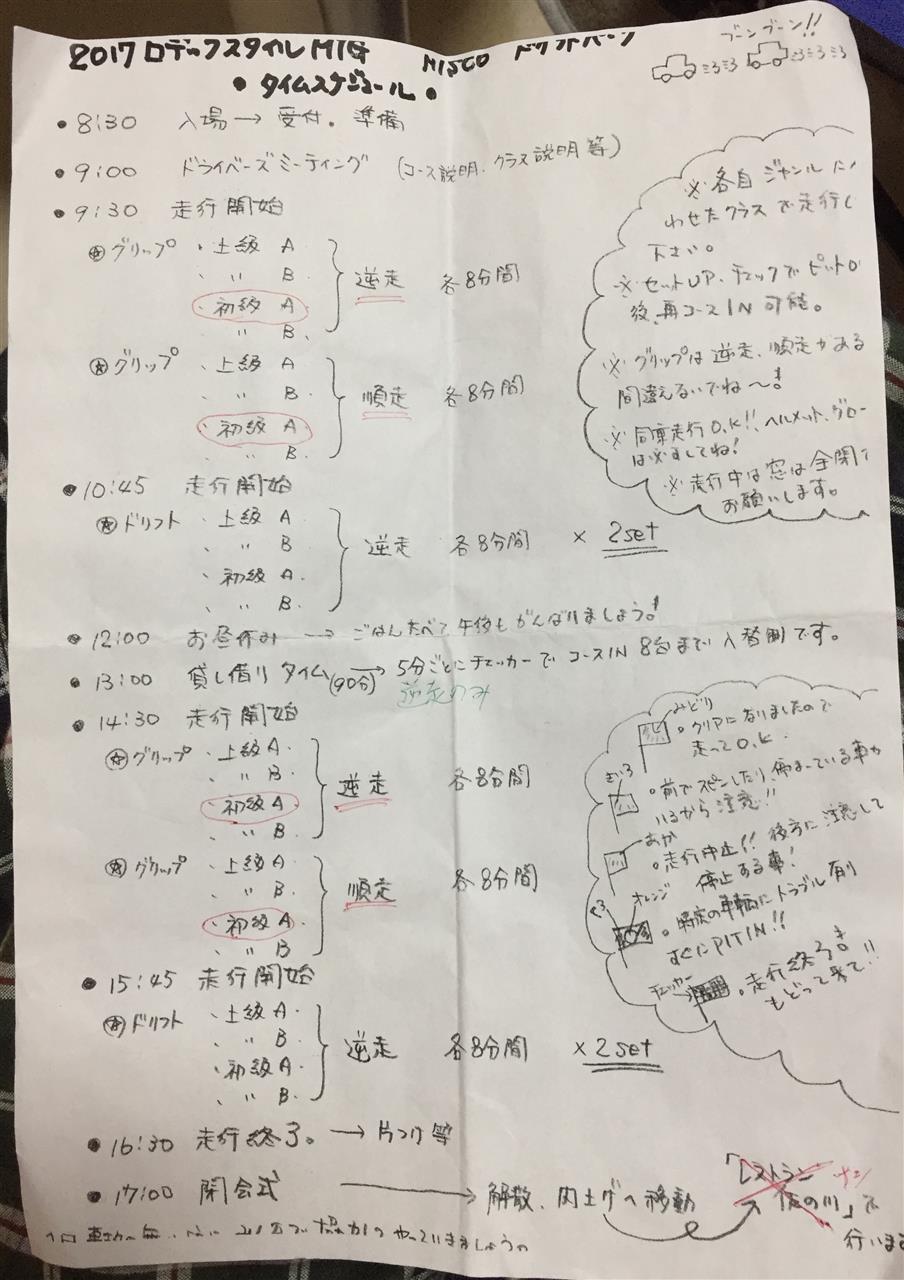 2017 ロデックスタイル MTG HISCO ドリフトパーク
ブーンブーン!!
• タイムスケジュール •
• 8:30 入場 → 受付。準備
• 9:00 ドライバーズミーティング (コース説明、クラス説明等)
• 9:30 走行開始
グリップ ・上級 A
・ 〃 B.
・初級 A
・ 〃 B.
逆走 各8分間
グリップ ・上級 A
・ 〃 B
・初級 A
・ 〃 B.
順走 各8分間
※各自ジャンルに
わせたクラスで走行し
下さい。
※セットUP、チェックでピット
後、再コースIN可能。
※グリップは逆走、順走がある
間違えないでね〜!
※同乗走行O.K!!、ヘルメット、グロー
は必ずしてね!
※走行中は窓は全閉で
お願いします。
• 10:45 走行開始
ドリフト ・上級 A
・ 〃 B
・初級 A.
・ 〃 B.
逆走 各8分間 × 2set
• 12:00 お昼休み → ごはんたべて午後もがんばりましょう!
• 13:00 貸し借りタイム(90分) → 5分ごとにチェッカーでコースIN 8台まで入替制です。
逆走のみ
• 14:30 走行開始
グリップ ・上級 A.
・ 〃 B.
・初級 A
・ 〃 B
逆走 各8分間
グリップ ・上級 A
・ 〃 B
・初級 A
・ 〃 B
順走 各8分間
みどり
。クリアになりましたので
走ってO.K.
きいろ
。前でスピンしたり、停まっている車が
いるから注意!!
あか
。走行中止!! 後方に注意して
停止する事!
くろ オレンジ
。特定の車輌にトラブル有り
すぐにPIT IN!!
チェッカー
。走行終了!
もどって来て!!
• 15:45 走行開始
ドリフト ・上級 A.
・ 〃 B.
・初級 A
・ 〃 B
逆走 各8分間 × 2set
• 16:30 走行終了。 → 片づけ等
• 17:00 閉会式 → 解散、内土げへ移動
「レストラン ナシ
の川」で
行いま
やっていきましょう。